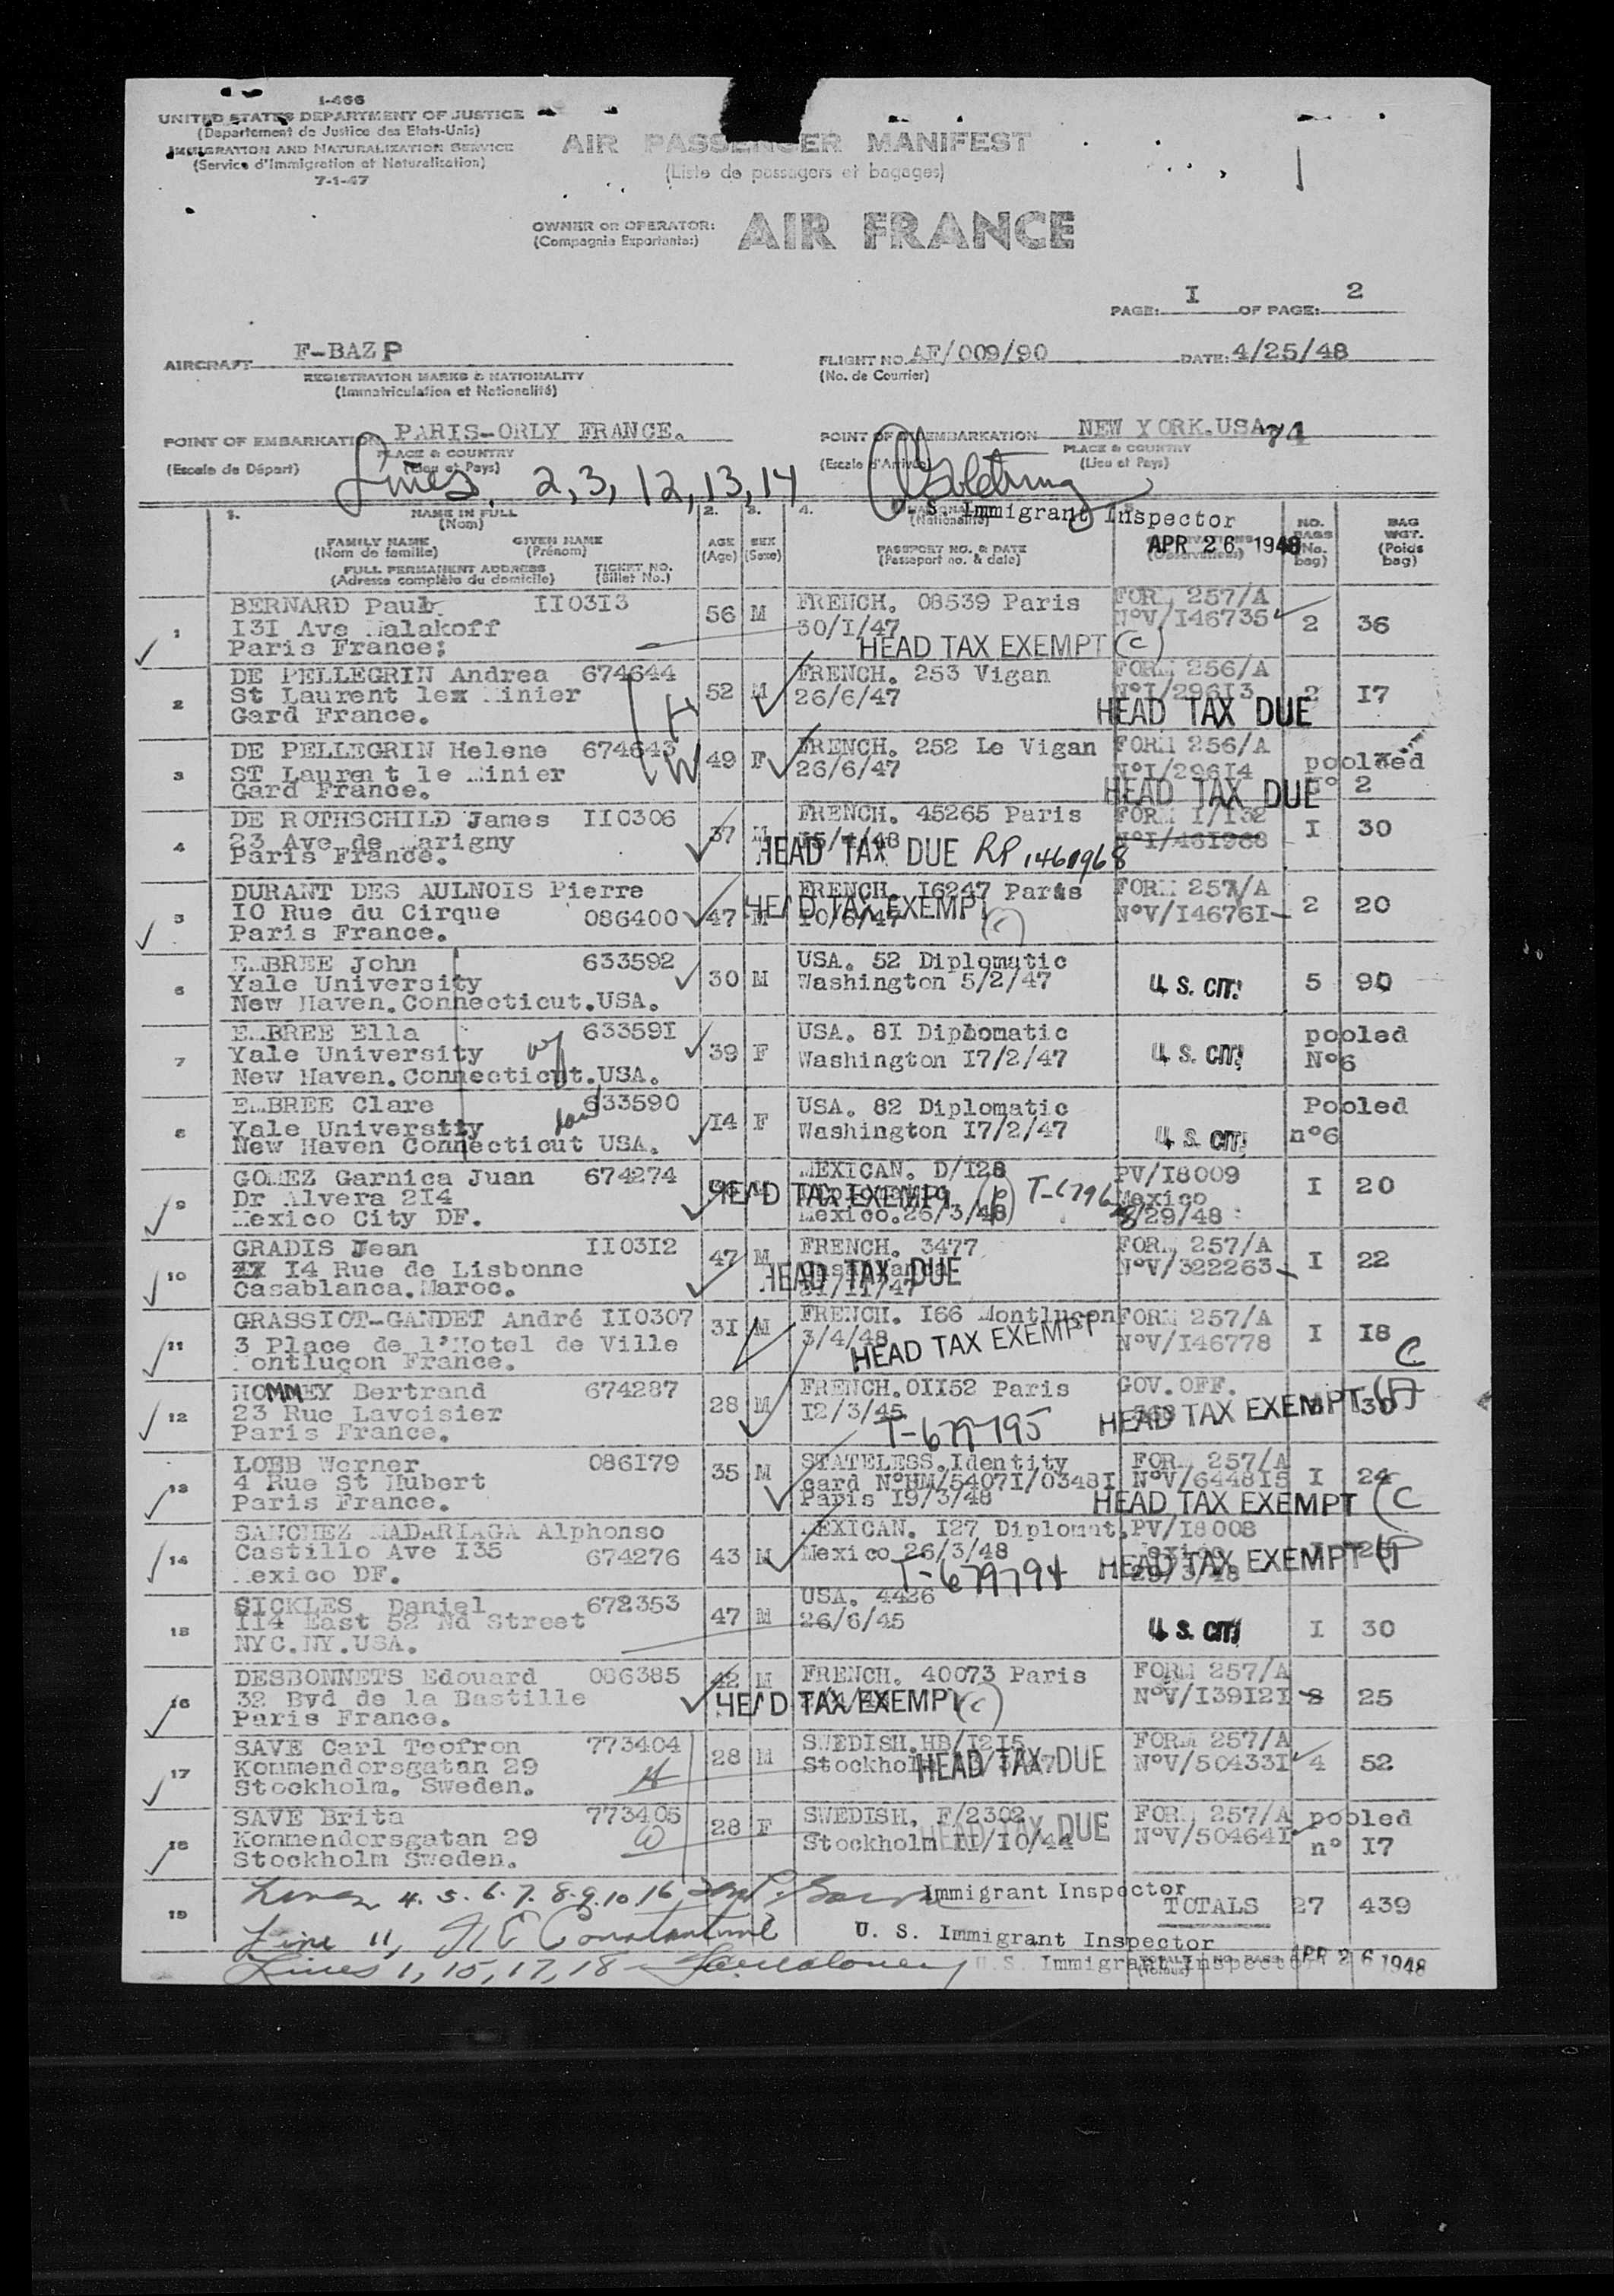 I-466
UNITED STATES DEPARTMENT OF JUSTICE
(Departement de Justice des Etats-Unis)
IMMIGRATION AND NATURALIZATION SERVICE
(Service d'Immigration et Naturalization)
7-1-47
AIR PASSENGER MANIFEST
(Liste de passagers et bagages)
OWNER OR OPERATOR: AIR FRANCE
(Compagnie Exportante:)
PAGE: I OF PAGE: 2
AIRCRAFT F-BAZP
REGISTRATION MARKS & NATIONALITY
(Immatriculation et Nationalité)
FLIGHT NO. AF/009/90 DATE: 4/25/48
(No. de Courrier)
POINT OF EMBARKATION PARIS-ORLY FRANCE.
(Escale de Départ) PLACE & COUNTRY
(Lieu et Pays)
POINT OF DISEMBARKATION NEW YORK.USA 74
(Escale d'Arrivée) PLACE & COUNTRY
(Lieu et Pays)
Lines. 2, 3, 12, 13, 14
U. S. Immigrant Inspector
APR 26 1948
1. NAME IN FULL
(Nom)
FAMILY NAME GIVEN NAME
(Nom de famille) (Prénom)
FULL PERMANENT ADDRESS TICKET NO.
(Adresse complète du domicile) (Billet No.)
2. AGE
(Age)
3. SEX
(Sexe)
4. (Nationalité)
PASSPORT NO. & DATE
(Passeport no. & date)
(Observations)
NO. BAGS
(No. bag)
BAG WGT.
(Poids bag)
1 BERNARD Paul II03I3 56 M FRENCH. 08539 Paris FORM 257/A
I3I Ave Malakoff 30/I/47 N°V/I46735 2 36
Paris France; HEAD TAX EXEMPT (C)
2 DE PELLEGRIN Andrea 674644 52 M FRENCH. 253 Vigan FORM 256/A
St Laurent lex Minier H 26/6/47 N°I/296I3 2 I7
Gard France. HEAD TAX DUE
3 DE PELLEGRIN Helene 674643 49 F FRENCH. 252 Le Vigan FORM 256/A
ST Laurent le Minier W 26/6/47 N°I/296I4 pooled
Gard France. HEAD TAX DUE n° 2
4 DE ROTHSCHILD James II0306 37 M FRENCH. 45265 Paris FORM I/I32
23 Ave de Marigny 15/4/48 N°I/46I988 I 30
Paris France. HEAD TAX DUE RP 1461968
5 DURANT DES AULNOIS Pierre FRENCH. I6247 Paris FORM 257/A
IO Rue du Cirque 086400 47 M I0/6/47 N°V/I4676I 2 20
Paris France. HEAD TAX EXEMPT (C)
6 EMBREE John 633592 30 M USA. 52 Diplomatic
Yale University Washington 5/2/47 U. S. CIT. 5 90
New Haven.Connecticut.USA.
7 EMBREE Ella 63359I 39 F USA. 8I Diplomatic pooled
Yale University wf Washington I7/2/47 U. S. CIT. N°6
New Haven.Connecticut.USA.
8 EMBREE Clare 633590 I4 F USA. 82 Diplomatic Pooled
Yale University dau Washington I7/2/47 U. S. CIT. n°6
New Haven Connecticut USA.
9 GOMEZ Garnica Juan 674274 MEXICAN. D/I28 PV/I8009
Dr Alvera 2I4 HEAD TAX EXEMPT Mexico I 20
Mexico City DF. Mexico.26/3/48 /29/48
10 GRADIS Jean II03I2 47 M FRENCH. 3477 FORM 257/A
I4 Rue de Lisbonne HEAD TAX DUE N°V/322263 I 22
Casablanca.Maroc.
11 GRASSIOT-GANDET André II0307 3I M FRENCH. I66 Montluçon FORM 257/A
3 Place de l'Hotel de Ville 3/4/48 N°V/I46778 I I8
Montluçon France. HEAD TAX EXEMPT C
12 HOMMEY Bertrand 674287 28 M FRENCH.0II52 Paris GOV. OFF.
23 Rue Lavoisier I2/3/45 HEAD TAX EXEMPT 30
Paris France. T-679795
13 LOEB Werner 086I79 35 M STATELESS.Identity FORM 257/A
4 Rue St Hubert card N°HM/5407I/0348I N°V/6448I5 I 24
Paris France. Paris I9/3/48 HEAD TAX EXEMPT (C
14 SANCHEZ MADARIAGA Alphonso MEXICAN. I27 Diplomat. PV/I8008
Castillo Ave I35 674276 43 M Mexico 26/3/48 HEAD TAX EXEMPT
Mexico DF. T-679794 29/3/48
15 SICKLES Daniel 672353 47 M USA. 4426
II4 East 52 Nd Street 26/6/45 U. S. CIT. I 30
NYC.NY.USA.
16 DESBONNETS Edouard 086385 42 M FRENCH. 40073 Paris FORM 257/A
32 Bvd de la Bastille HEAD TAX EXEMPT (C) N°V/I39I2I 2 25
Paris France.
17 SAVE Carl Teofron 773404 28 M SWEDISH.HB/I2I5 FORM 257/A
Kommendorsgatan 29 H Stockholm HEAD TAX DUE N°V/50433I 4 52
Stockholm. Sweden.
18 SAVE Brita 773405 28 F SWEDISH. F/2302 FORM 257/A pooled
Kommendorsgatan 29 W Stockholm II/I0/44 HEAD TAX DUE N°V/50464I n° I7
Stockholm Sweden.
19 Lines 4. 5. 6. 7. 8. 9. 10 16 Immigrant Inspector TOTALS 27 439
Line 11, U. S. Immigrant Inspector
Lines 1, 15, 17, 18 U. S. Immigrant Inspector APR 26 1948